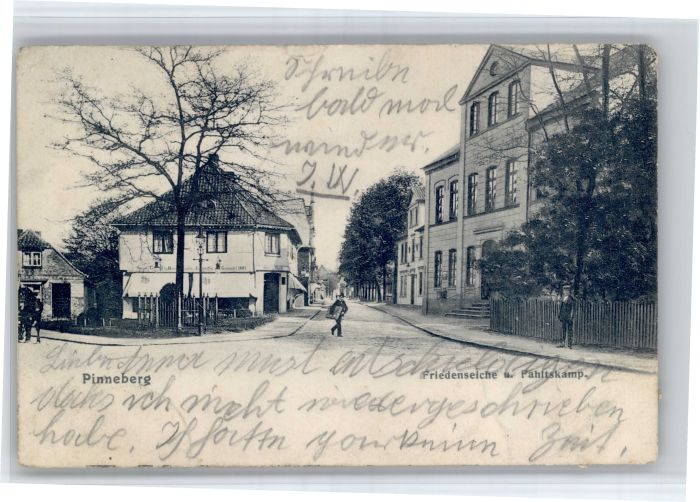 Schreibe
bald mal
wieder.
J. W.
Pinneberg
Friedenseiche u. Fahltskamp.
Liebe Anna must entschuldigen
dass ich nicht wiedergeschrieben
habe. Ich hatte gar keine Zeit.